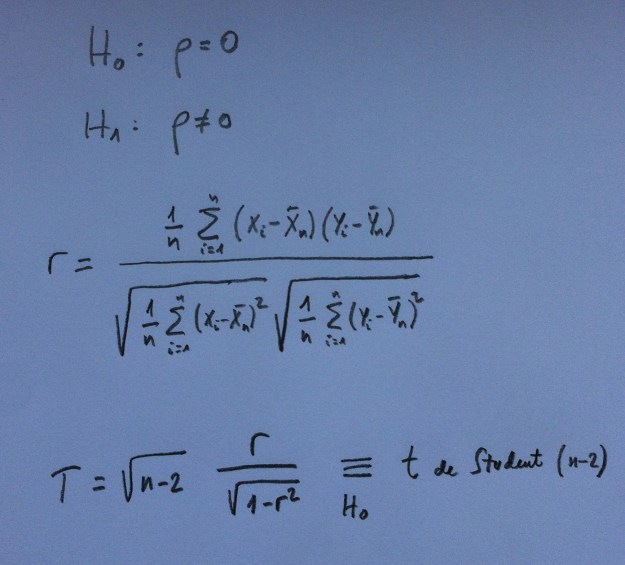 H₀: ρ=0
H₁: ρ≠0
r = \frac{\frac{1}{n} \sum_{i=1}^{n} (X_i - \bar{X}_n)(Y_i - \bar{Y}_n)}{\sqrt{\frac{1}{n} \sum_{i=1}^{n} (X_i - \bar{X}_n)^2} \sqrt{\frac{1}{n} \sum_{i=1}^{n} (Y_i - \bar{Y}_n)^2}}
T = \sqrt{n-2} \frac{r}{\sqrt{1-r^2}} \underset{H_0}{\equiv} t de Student (n-2)